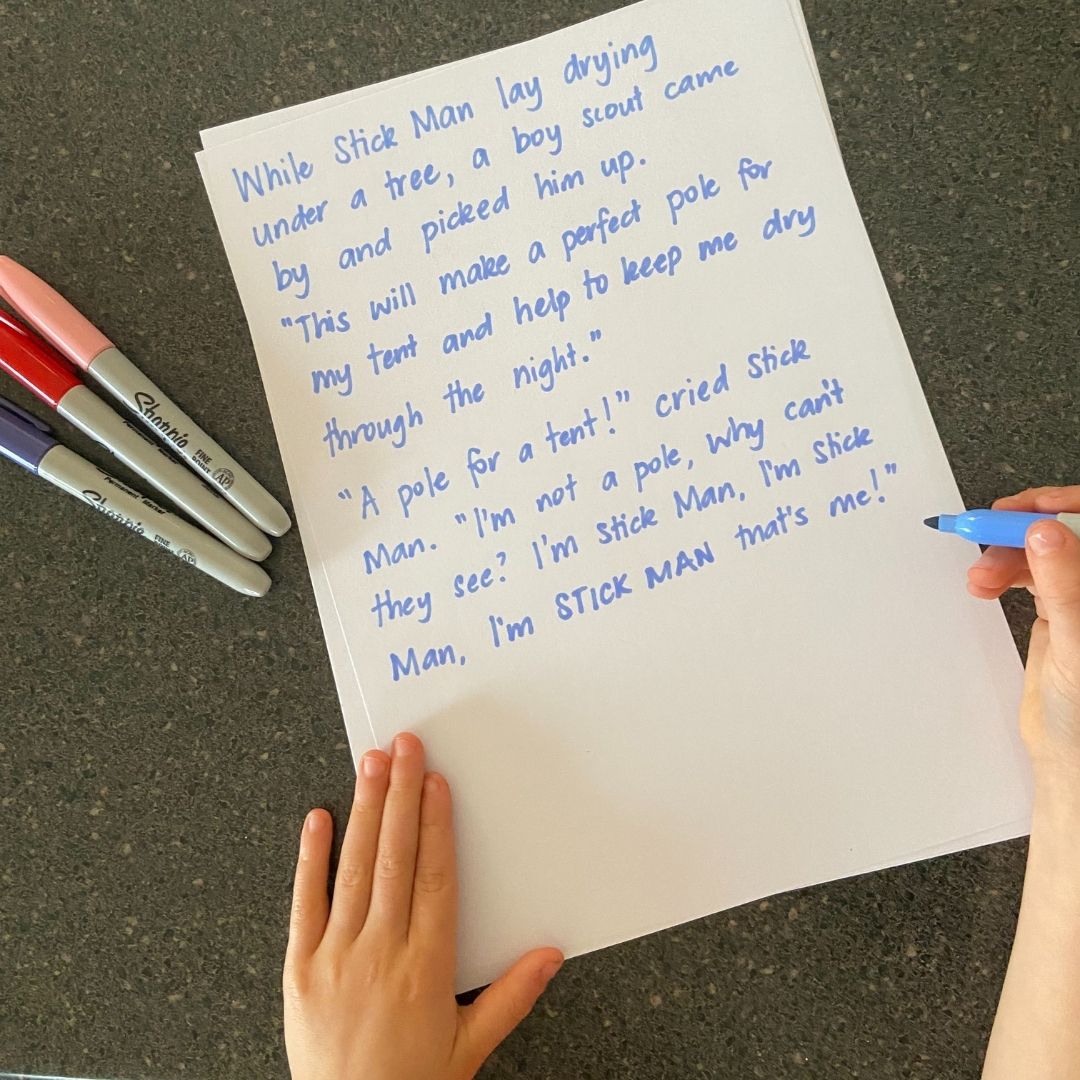 While Stick Man lay drying
under a tree, a boy scout came
by and picked him up.
"This will make a perfect pole for
my tent and help to keep me dry
through the night."
"A pole for a tent!" cried Stick
Man. "I'm not a pole, why can't
they see? I'm Stick Man, I'm Stick
Man, I'm STICK MAN that's me!"
Sharpie
FINE
POINT
AP
Permanent Marker
Sharpie
Permanent Marker
FINE
POINT
AP